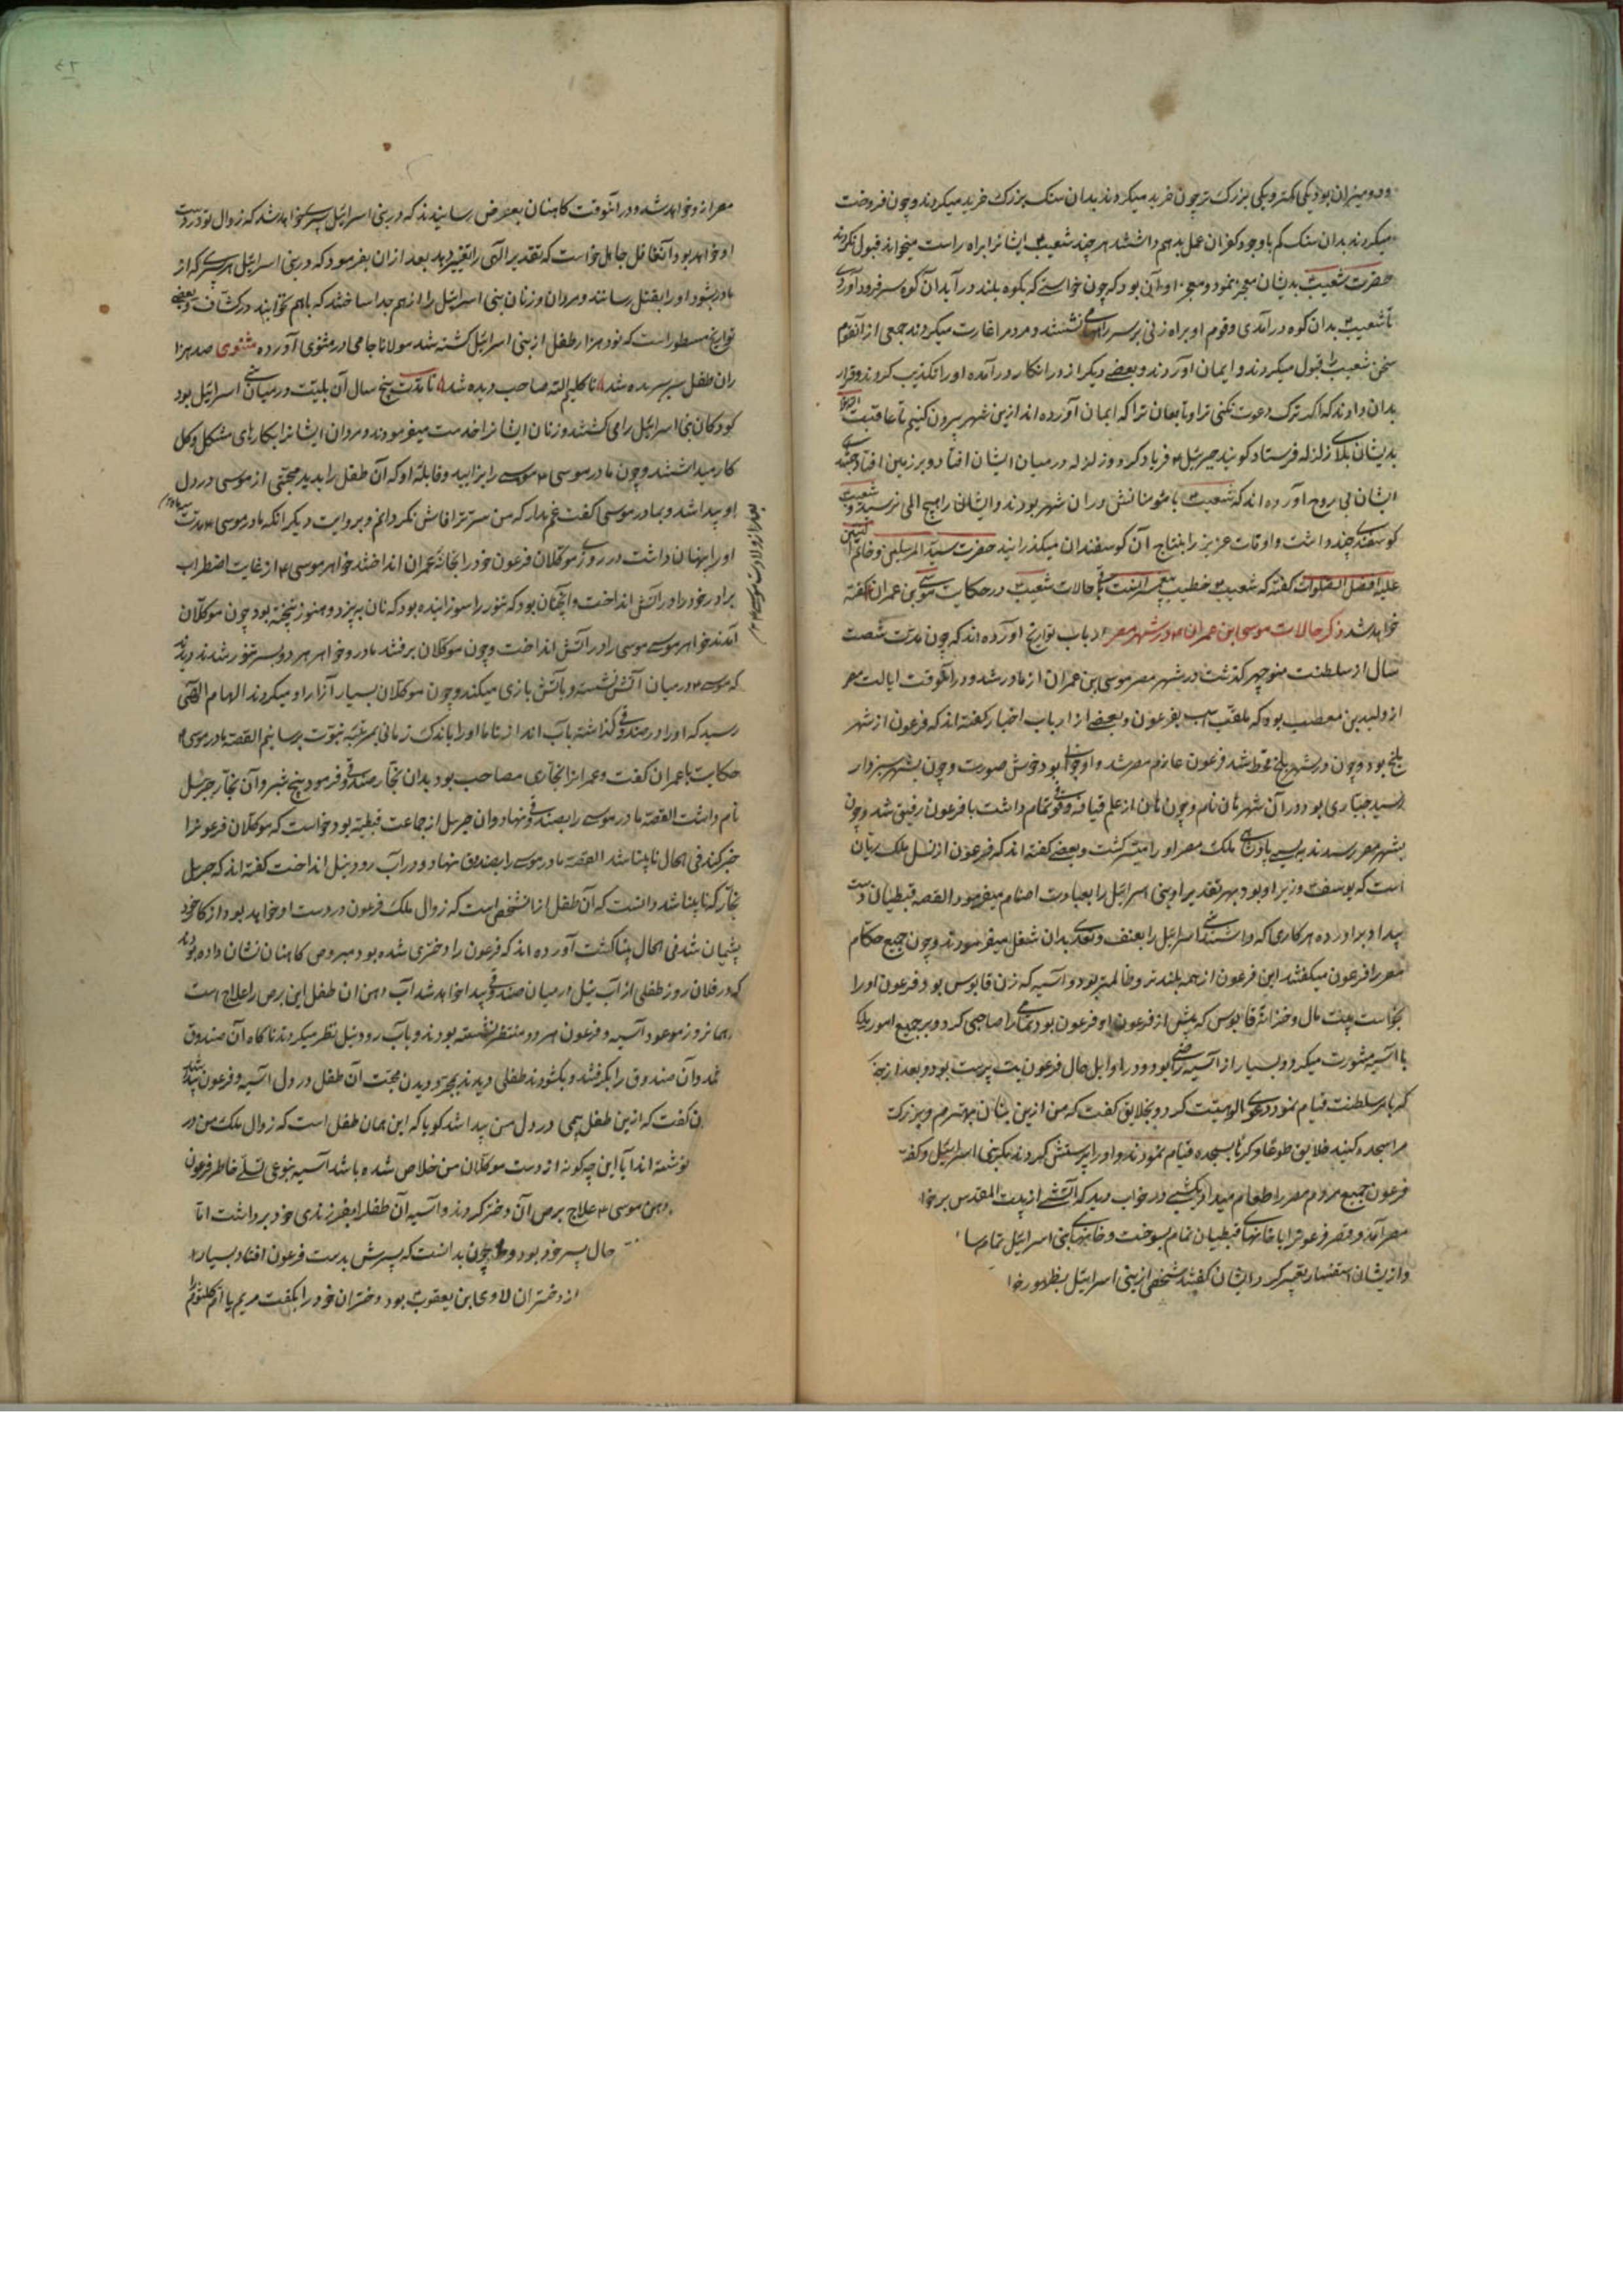 و دو میزان بود یکی کمتر و یکی بزرک تر چون خرید میکردند بدان سنک بزرک خرید میکردند و چون فروخت
میکردند بدان سنک کم باوجود کفر آن عمل بد هم داشتند هر چند شعیب ۴ ایشانرا براه راست میخواند قبول نکردند
حضرت شعیب بدیشان معجزه نمود و معجزه او آن بود که چون خواستی که بکوه بلند در آید آن کوه سر فرود آوردی
تا شعیب ۴ بدان کوه در آمدی و قوم او براه زنی بر سر راهها می نشستند و مردم را غارت میکردند جمعی از آنقوم
سخن شعیب ۴ قبول میکردند و ایمان آوردند و بعضی دیکر از در انکار در آمده او را تکذیب کردند و قرار
بدان دادند که اکر ترک دعوت نکنی ترا و تابعان ترا که ایمان آورده اند ازین شهر بیرون کنیم تا عاقبت
بدیشان بلای زلزله فرستاد کویند جبرئیل ۴ فریاد کرد و زلزله در میان ایشان افتاد و بر زمین افتادند
ایشان بی روح آورده اند که شعیب ۴ با مؤمنانش در آن شهر بودند و ایشانرا هیچ المی نرسید و شعیب
کوسفندی چند داشت و اوقات عزیز را بنتاج آن کوسفندان میکذرانید حضرت سید المرسلین و خاتم النبیین
علیه افضل الصلوات کفته که شعیب ۴ خطیب پیغمبرانست باقی حالات شعیب ۴ در حکایت موسی بن عمران کفته
خواهد شد ذکر حالات موسی ابن عمران ۴ در شهر مصر ارباب تواریخ آورده اند که چون مدت شصت
سال از سلطنت منوچهر کذشت در شهر مصر موسی بن عمران از مادر شد و در آنوقت ایالت مصر
از ولید بن مصعب بوده که ملقب است بفرعون و بعضی از ارباب اخبار کفته اند که فرعون از شهر
بلخ بود و چون در شهر بلخ قحط شد فرعون عازم مصر شد و او جوانی بود خوش صورت و چون بشهر سبزوار
رسید جباری بود در آن شهر هامان نام و چون هامان از علم قیافه وقوفی تمام داشت با فرعون رفیق شد و چون
بشهر مصر رسیدند پادشاهی ملک مصر او را میسر کشت و بعضی کفته اند که فرعون از نسل ملک ریان
است که یوسف ۴ وزیر او بود بهر تقدیر او بنی اسرائیل را بعبادت اصنام میفرمود القصه قبطیان دست
بیداد برآورده هر کاری که داشتندی بنی اسرائیل را بعنف و تعدی بدان شغل میفرمودند و چون جمیع حکام
مصر را فرعون میکفتند این فرعون از همه بلندتر و ظالمتر بود و آسیه که زن قابوس بود فرعون او را
بخواست بجهت مال و خزانه قابوس که پیش از فرعون او فرعون بود تمامی را صاحبی کرد و بر جمیع امور ملکی
با آسیه مشورت میکرد و بسیار از آسیه راضی بود و در اوایل حال فرعون بت پرست بود و بعد از
که بامر سلطنت قیام نمود دعوی الوهیت کرد و بخلایق کفت که من ازین بتان مهترم و بزرکتر
مرا سجده کنید خلایق طوعا و کرها بسجده قیام نمودند و او را پرستش کردند مکر بنی اسرائیل و کفته
فرعون جمیع مردم مصر را طعام میداد و شبی در خواب دید که آتشی از بیت المقدس برخا
مصر آمد و قصر فرعونرا با خانهای قبطیان تمام بسوخت و خانهای بنی اسرائیل تمام سا
و ازیشان استفسار تعبیر کرد ایشان کفتند شخصی از بنی اسرائیل بظهور خوا
مصر ازو خواهد شد و در آنوقت کاهنان بعرض رسانیدند که در بنی اسرائیل پسری خواهد شد که زوال تو در دست
او خواهد بود آنغافل جاهل خواست که تقدیر الهی را تغییر دهد بعد از آن بفرمود که در بنی اسرائیل هر پسری که از
مادر بشود او را بقتل رسانند و مردان و زنان بنی اسرائیل را از هم جدا ساختند که با هم نخوابند در کشاف و بعضی
تواریخ مسطور است که نود هزار طفل از بنی اسرائیل کشته شد مولانا جامی در مثنوی آورده مثنوی صد هزا
ران طفل سر بریده شد تا کلیم الله صاحب دیده شد تا مدت پنج سال آن بلیت در میان بنی اسرائیل بود
کودکان بنی اسرائیل را می کشتند و زنان ایشانرا خدمت میفرمودند و مردان ایشانرا بکارهای مشکل و کل
کار میداشتند و چون مادر موسی ۴ موسی را بزایید و قابله او که آن طفل را بدید محبتی از موسی در دل
او پیدا شد و بمادر موسی کفت غم مدار که من سر ترا فاش نکردانم و بروایت دیکر آنکه مادر موسی ۴ مدت سه ماه
بعد از ولادت موسی ۴
او را پنهان داشت در روزی موکلان فرعون خود را بخانه عمران انداختند خواهر موسی ۴ از غایت اضطراب
برادر خود را در آتش انداخت و آنچنان بود که تنور را سوزانیده بود که نان بپزد و هنوز نپخته بود چون موکلان
آمدند خواهر موسی موسی را در آتش انداخت و چون موکلان برفتند مادر و خواهر هر دو بسر تنور شدند دیدند
که موسی ۴ در میان آتش نشسته و بآتش بازی میکند و چون موکلان بسیار آزار او میکردند الهام الهی
رسید که او را در صندوقی کذاشته بآب انداز تا ما او را باندک زمانی بمرتبه نبوت برسانیم القصه مادر موسی ۴
حکایت با عمران کفت و عمرانرا نجاری مصاحب بود بدان نجار صندوقی فرمود پنج شبر و آن نجار جرئیل
نام داشت القصه مادر موسی را بصندوقی نهاد و آن جرئیل از جماعت قبطیه بود خواست که موکلان فرعونرا
خبر کند فی الحال نابینا شد القصه مادر موسی را بصندوق نهاد و در آب رود نیل انداخت کفته اند که جرئیل
نجار که نابینا شد دانست که آن طفل از آن شخص است که زوال ملک فرعون در دست او خواهد بود از کار خود
پشیمان شد فی الحال بینا کشت آورده اند که فرعون را دختری شده بود مبروص کاهنان نشان داده بودند
که در فلان روز طفلی از آب نیل در میان صندوقی پیدا خواهد شد آب دهن آن طفل این برص را علاج است
همانروز موعود آسیه و فرعون هر دو منتظر نشسته بودند و بآب رود نیل نظر میکردند ناکاه آن صندوق
مد و آن صندوق را بکرفتند و بکشودند طفلی دیدند بمجرد دیدن محبت آن طفل در دل آسیه و فرعون پیدا شد
ن کفت که ازین طفل بیمی در دل من پیدا شد کویا که این همان طفل است که زوال ملک من در
نوشته اند آیا این چکونه از دست موکلان من خلاص شده باشد آسیه بنوعی تسلی خاطر فرعون
دهن موسی ۴ علاج برص آن دختر کردند و آسیه آن طفلرا بفرزندی خود برداشت اما
حال پسر خود بود و چون بدانست که پسرش بدست فرعون افتاد بسیار
از دختران لاوی ابن یعقوب بود دختران خود را بکفت مریم یا ام کلثوم را